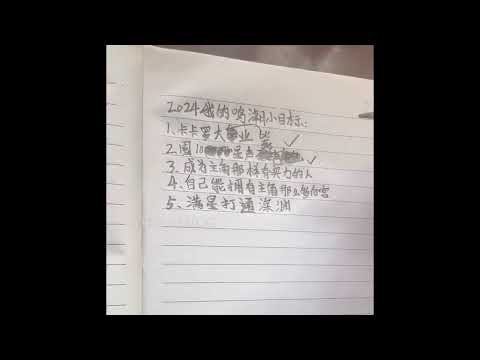 2024我的鸣潮小目标:
1、卡卡罗大毕业
2、囤10 星声
3、成为主角那样有实力的人
4、自己能拥有主角那么多后宫
5、满星打通深渊